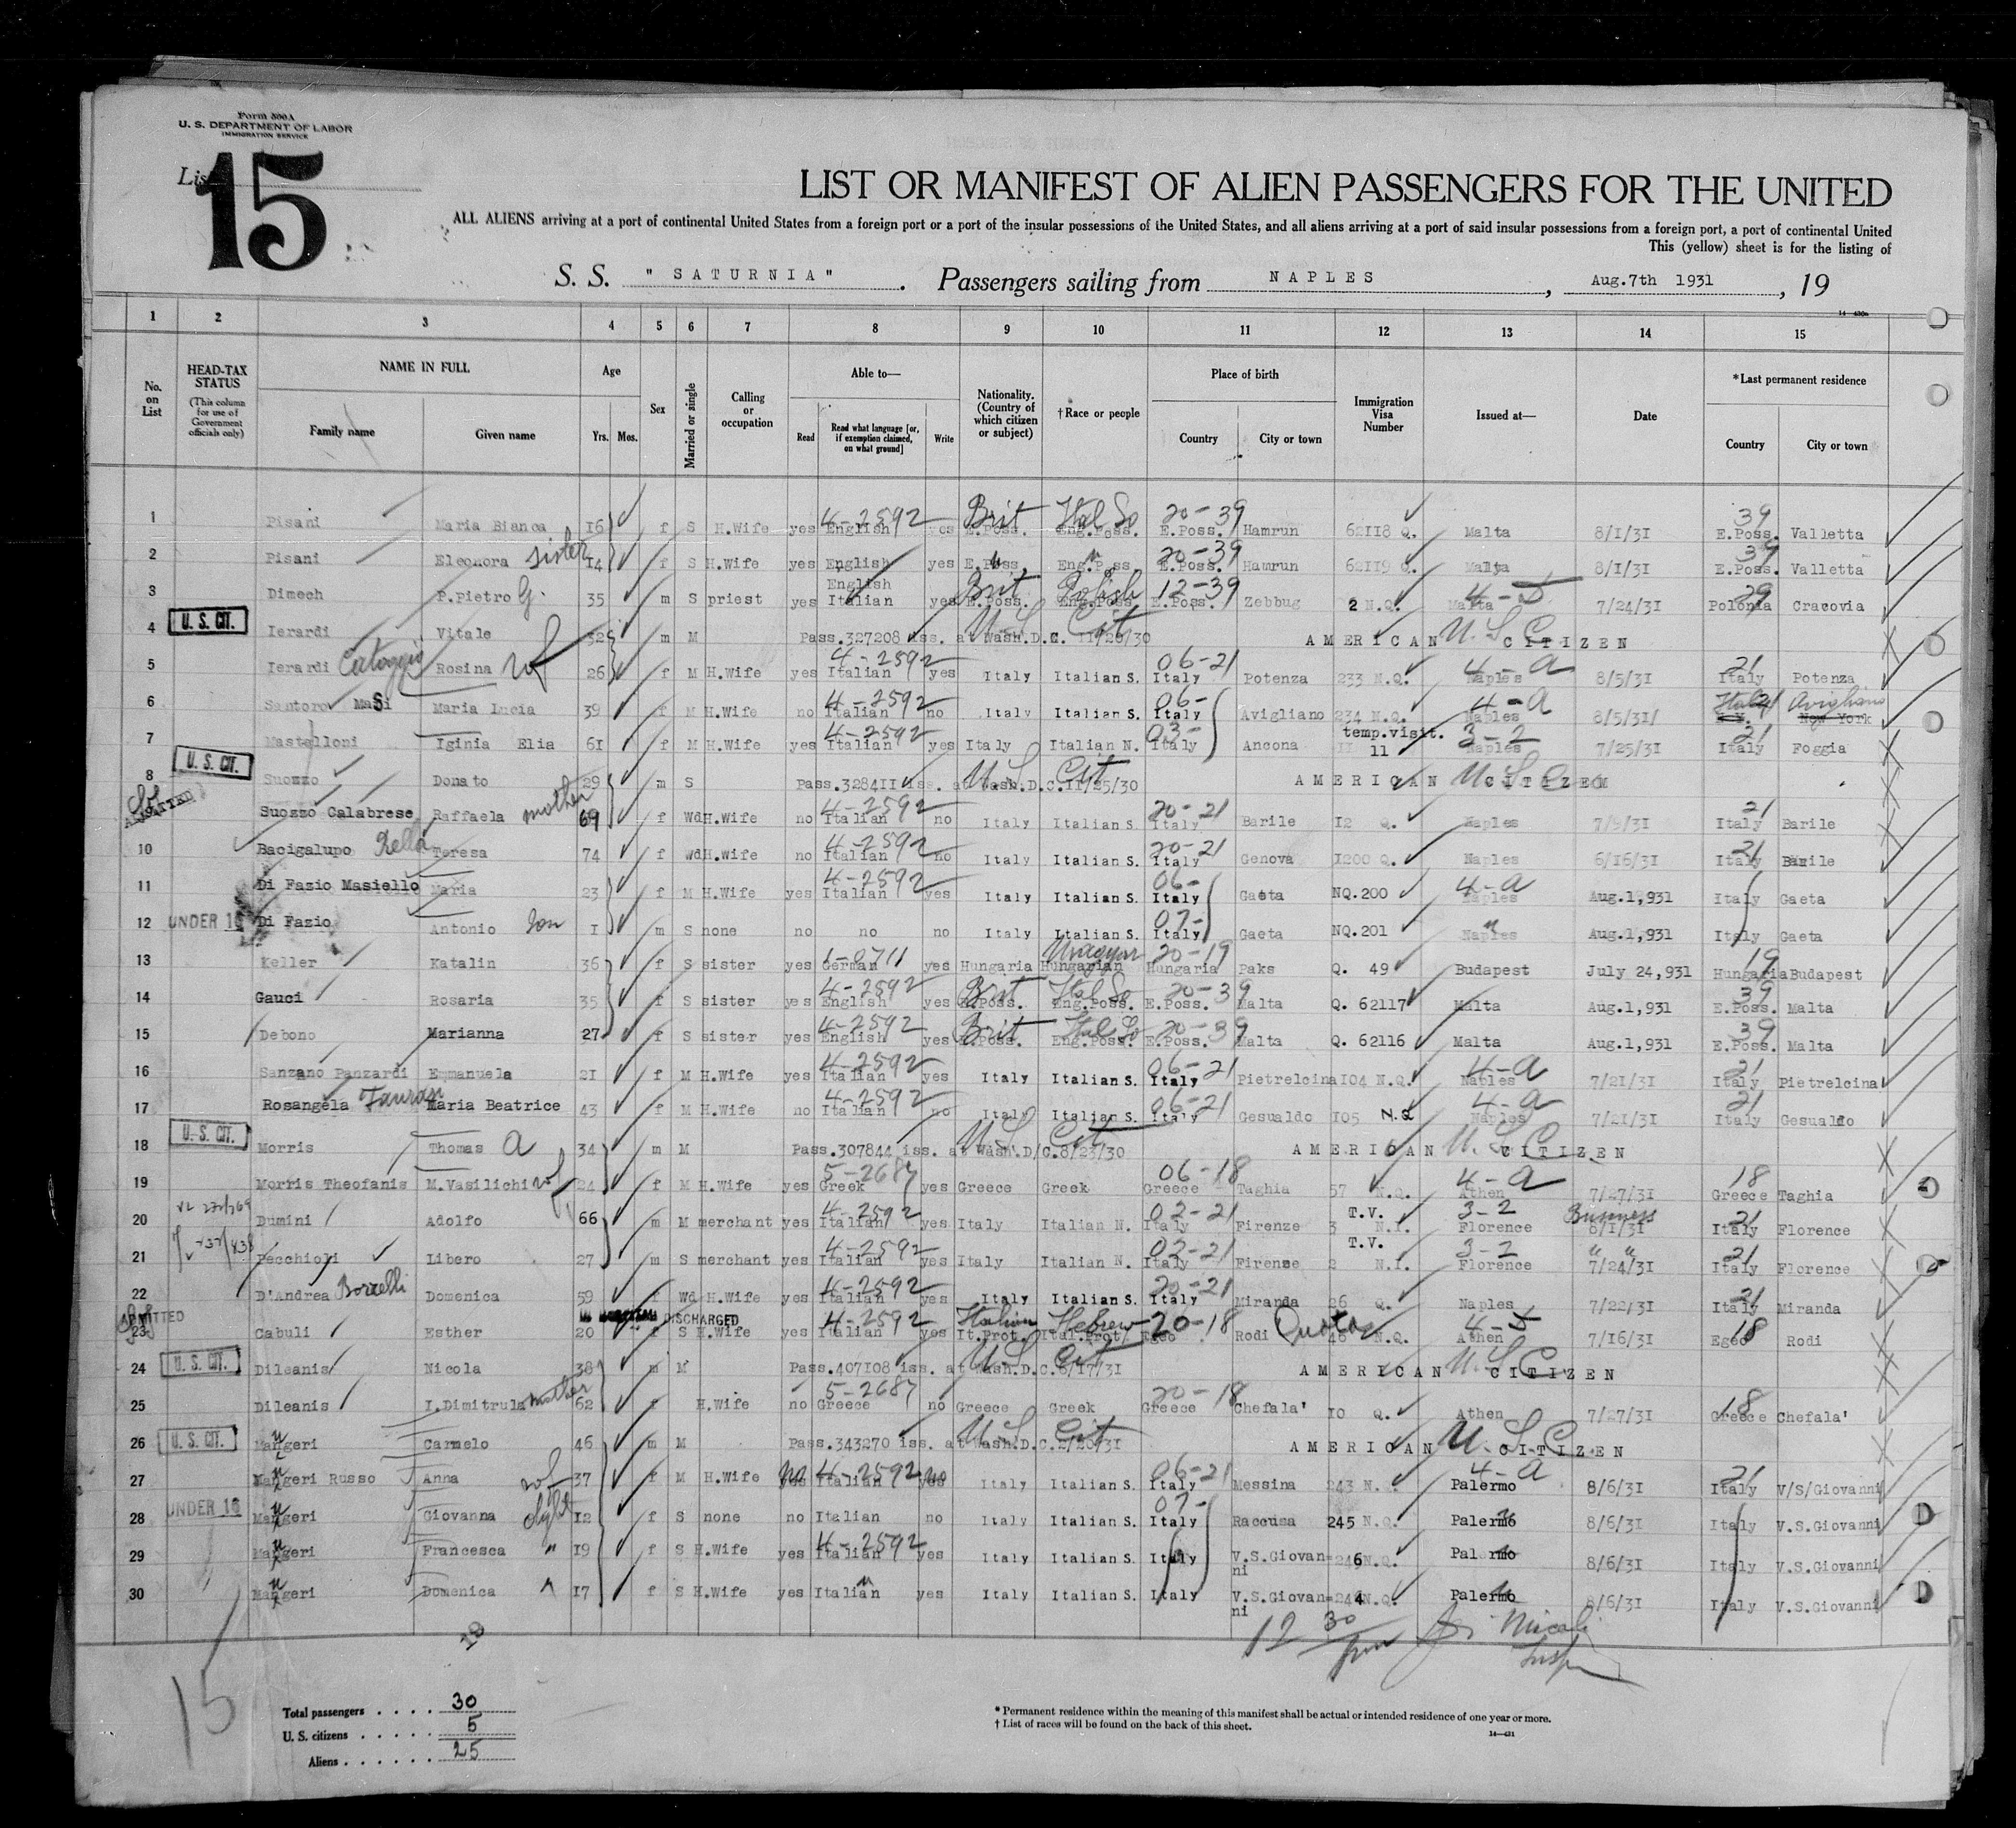 Form 500A
U. S. DEPARTMENT OF LABOR
IMMIGRATION SERVICE
List 15
LIST OR MANIFEST OF ALIEN PASSENGERS FOR THE UNITED
ALL ALIENS arriving at a port of continental United States from a foreign port or a port of the insular possessions of the United States, and all aliens arriving at a port of said insular possessions from a foreign port, a port of continental United
This (yellow) sheet is for the listing of
S. S. "SATURNIA". Passengers sailing from NAPLES, Aug.7th 1931, 19
1 2 3 4 5 6 7 8 9 10 11 12 13 14 15
No. on List
HEAD-TAX STATUS (This column for use of Government officials only)
NAME IN FULL Family name Given name
Age Yrs. Mos.
Sex
Married or single
Calling or occupation
Able to— Read Read what language [or, if exemption claimed, on what ground] Write
Nationality. (Country of which citizen or subject)
† Race or people
Place of birth Country City or town
Immigration Visa Number
Issued at—
Date
*Last permanent residence Country City or town
1 Pisani Maria Bianca 16 f S H.Wife yes English 4-2592 yes E.Poss. Brit Eng.Poss. Ital So E.Poss. 20-39 Hamrun 62118 Q. Malta 8/1/31 E.Poss. 39 Valletta
2 Pisani Eleonora sister 14 f S H.Wife yes English yes E.Poss. Eng.Poss E.Poss. 20-39 Hamrun 62119 Q. Malta 8/1/31 E.Poss. 39 Valletta
3 Dimech P.Pietro G. 35 m S priest yes English Italian yes E.Poss. Brit Eng.Poss Polish E.Poss. 12-39 Zebbug 2 N.Q. Malta 7/24/31 Polonia 29 Cracovia
4 U. S. CIT. Ierardi Vitale 32 m M Pass.327208 iss. at Wash.D.C. 11/26/30 U.S. Cit AMERICAN CITIZEN U S C
5 Ierardi Catoggio Rosina wf 26 f M H.Wife yes Italian 4-2592 yes Italy Italian S. Italy 06-21 Potenza 233 N.Q. Naples 4-a 8/5/31 Italy 21 Potenza
6 Santoro Masi Maria Lucia 39 f M H.Wife no Italian 4-2592 no Italy Italian S. Italy 06- Avigliano 234 N.Q. Naples 4-a 8/5/31/ Italy 21 Avigliano New York
7 Mastelloni Iginia Elia 61 f M H.Wife yes Italian 4-2592 yes Italy Italian N. Italy 03- Ancona temp.visit. 11 Naples 3-2 7/25/31 Italy 21 Foggia
8 U. S. CIT. Suozzo Donato 29 m S Pass.328411 iss. at Wash.D.C.11/25/30 U S Cit AMERICAN CITIZEN U S C
ADMITTED Suozzo Calabrese Raffaela mother 69 f Wd H.Wife no Italian 4-2592 no Italy Italian S. Italy 20-21 Barile 12 Q. Naples 7/9/31 Italy 21 Barile
10 Bacigalupo Rella Teresa 74 f Wd H.Wife no Italian 4-2592 no Italy Italian S. Italy 20-21 Genova 1200 Q. Naples 6/16/31 Italy 21 Barile
11 Di Fazio Masiello Maria 23 f M H.Wife yes Italian 4-2592 yes Italy Italian S. Italy 06- Gaeta NQ.200 Naples 4-a Aug.1,931 Italy Gaeta
12 UNDER 16 Di Fazio Antonio Son 1 m S none no no no Italy Italian S. Italy 07- Gaeta NQ.201 Naples " Aug.1,931 Italy Gaeta
13 Keller Katalin 36 f S sister yes German 1-0711 yes Hungaria Hungarian Magyar Hungaria 20-19 Paks Q. 49 Budapest July 24,931 Hungaria 19 Budapest
14 Gauci Rosaria 35 f S sister yes English 4-2592 yes E.Poss. Brit Eng.Poss. Ital So E.Poss. 20-39 Malta Q. 62117 Malta Aug.1,931 E.Poss. 39 Malta
15 Debono Marianna 27 f S sister yes English 4-2592 yes E.Poss. Brit Eng.Poss. Ital So E.Poss. 20-39 Malta Q. 62116 Malta Aug.1,931 E.Poss. 39 Malta
16 Sanzano Panzardi Emmanuela 21 f M H.Wife yes Italian 4-2592 yes Italy Italian S. Italy 06-21 Pietrelcina 104 N.Q. Naples 4-a 7/21/31 Italy 21 Pietrelcina
17 Rosangela Taurasi Maria Beatrice 43 f M H.Wife no Italian 4-2592 no Italy Italian S. Italy 06-21 Gesualdo 105 N.Q Naples 4-a 7/21/31 Italy 21 Gesualdo
18 U. S. CIT. Morris Thomas A 34 m M Pass.307844 iss. at Wash.D/C.8/23/30 U S Cit AMERICAN CITIZEN U S C
19 Morris Theofanis M.Vasilichi wf 24 f M H.Wife yes Greek 5-2687 yes Greece Greek Greece 06-18 Taghia 57 N.Q. Athen 4-a 7/27/31 Greece 18 Taghia
20 Dumini Adolfo 66 m M merchant yes Italian 4-2592 yes Italy Italian N. Italy 02-21 Firenze T.V. 3 N.I. Florence 3-2 Business 8/1/31 Italy 21 Florence
21 Pecchioli Libero 27 m S merchant yes Italian 4-2592 yes Italy Italian N. Italy 02-21 Firenze T.V. 2 N.I. Florence 3-2 " " 7/24/31 Italy 21 Florence
22 D'Andrea Borrelli Domenica 59 f Wd H.Wife yes Italian 4-2592 yes Italy Italian S. Italy 20-21 Miranda 26 Q. Naples 7/22/31 Italy 21 Miranda
ADMITTED DISCHARGED
23 Cabuli Esther 20 f S H.Wife yes Italian 4-2592 yes It.Prot. Italian Ital.Prot/ Hebrew Egeo 20-18 Rodi Quota 46 N.Q. Athen 7/16/31 Egeo 18 Rodi
24 U. S. CIT. Dileanis Nicola 38 m M Pass.407108 iss. at Wash.D.C.6/17/31 U S Cit AMERICAN CITIZEN U S C
25 Dileanis I.Dimitrula mother 62 f H.Wife no Greece 5-2687 no Greece Greek Greece 20-18 Chefala' 10 Q. Athen 7/27/31 Greece 18 Chefala'
26 U. S. CIT. Mangeri Carmelo 46 m M Pass.343270 iss. at Wash.D.C.2/20/31 U S Cit AMERICAN CITIZEN U S C
27 Mangeri Russo Anna wf 37 f M H.Wife no Italian 4-2592 no Italy Italian S. Italy 06-21 Messina 243 N. Palermo 4-a 8/6/31 Italy 21 V/S/Giovanni
28 UNDER 16 Mangeri Giovanna dght 12 f S none no Italian no Italy Italian S. Italy 07- Raccusa 245 N.Q. Palermo 8/6/31 Italy V.S.Giovanni
29 Mangeri Francesca " 19 f S H.Wife yes Italian 4-2592 yes Italy Italian S. Italy V.S.Giovanni 246 N.Q. Palermo 8/6/31 Italy V.S.Giovanni
30 Mangeri Domenica " 17 f S H.Wife yes Italian " yes Italy Italian S. Italy V.S.Giovanni 244 N.Q. Palermo 8/6/31 Italy V.S.Giovanni
12 30 pm Micali Insp
15
Total passengers . . . . 30
U. S. citizens . . . . . 5
Aliens . . . . . . 25
* Permanent residence within the meaning of this manifest shall be actual or intended residence of one year or more.
† List of races will be found on the back of this sheet.
14—431